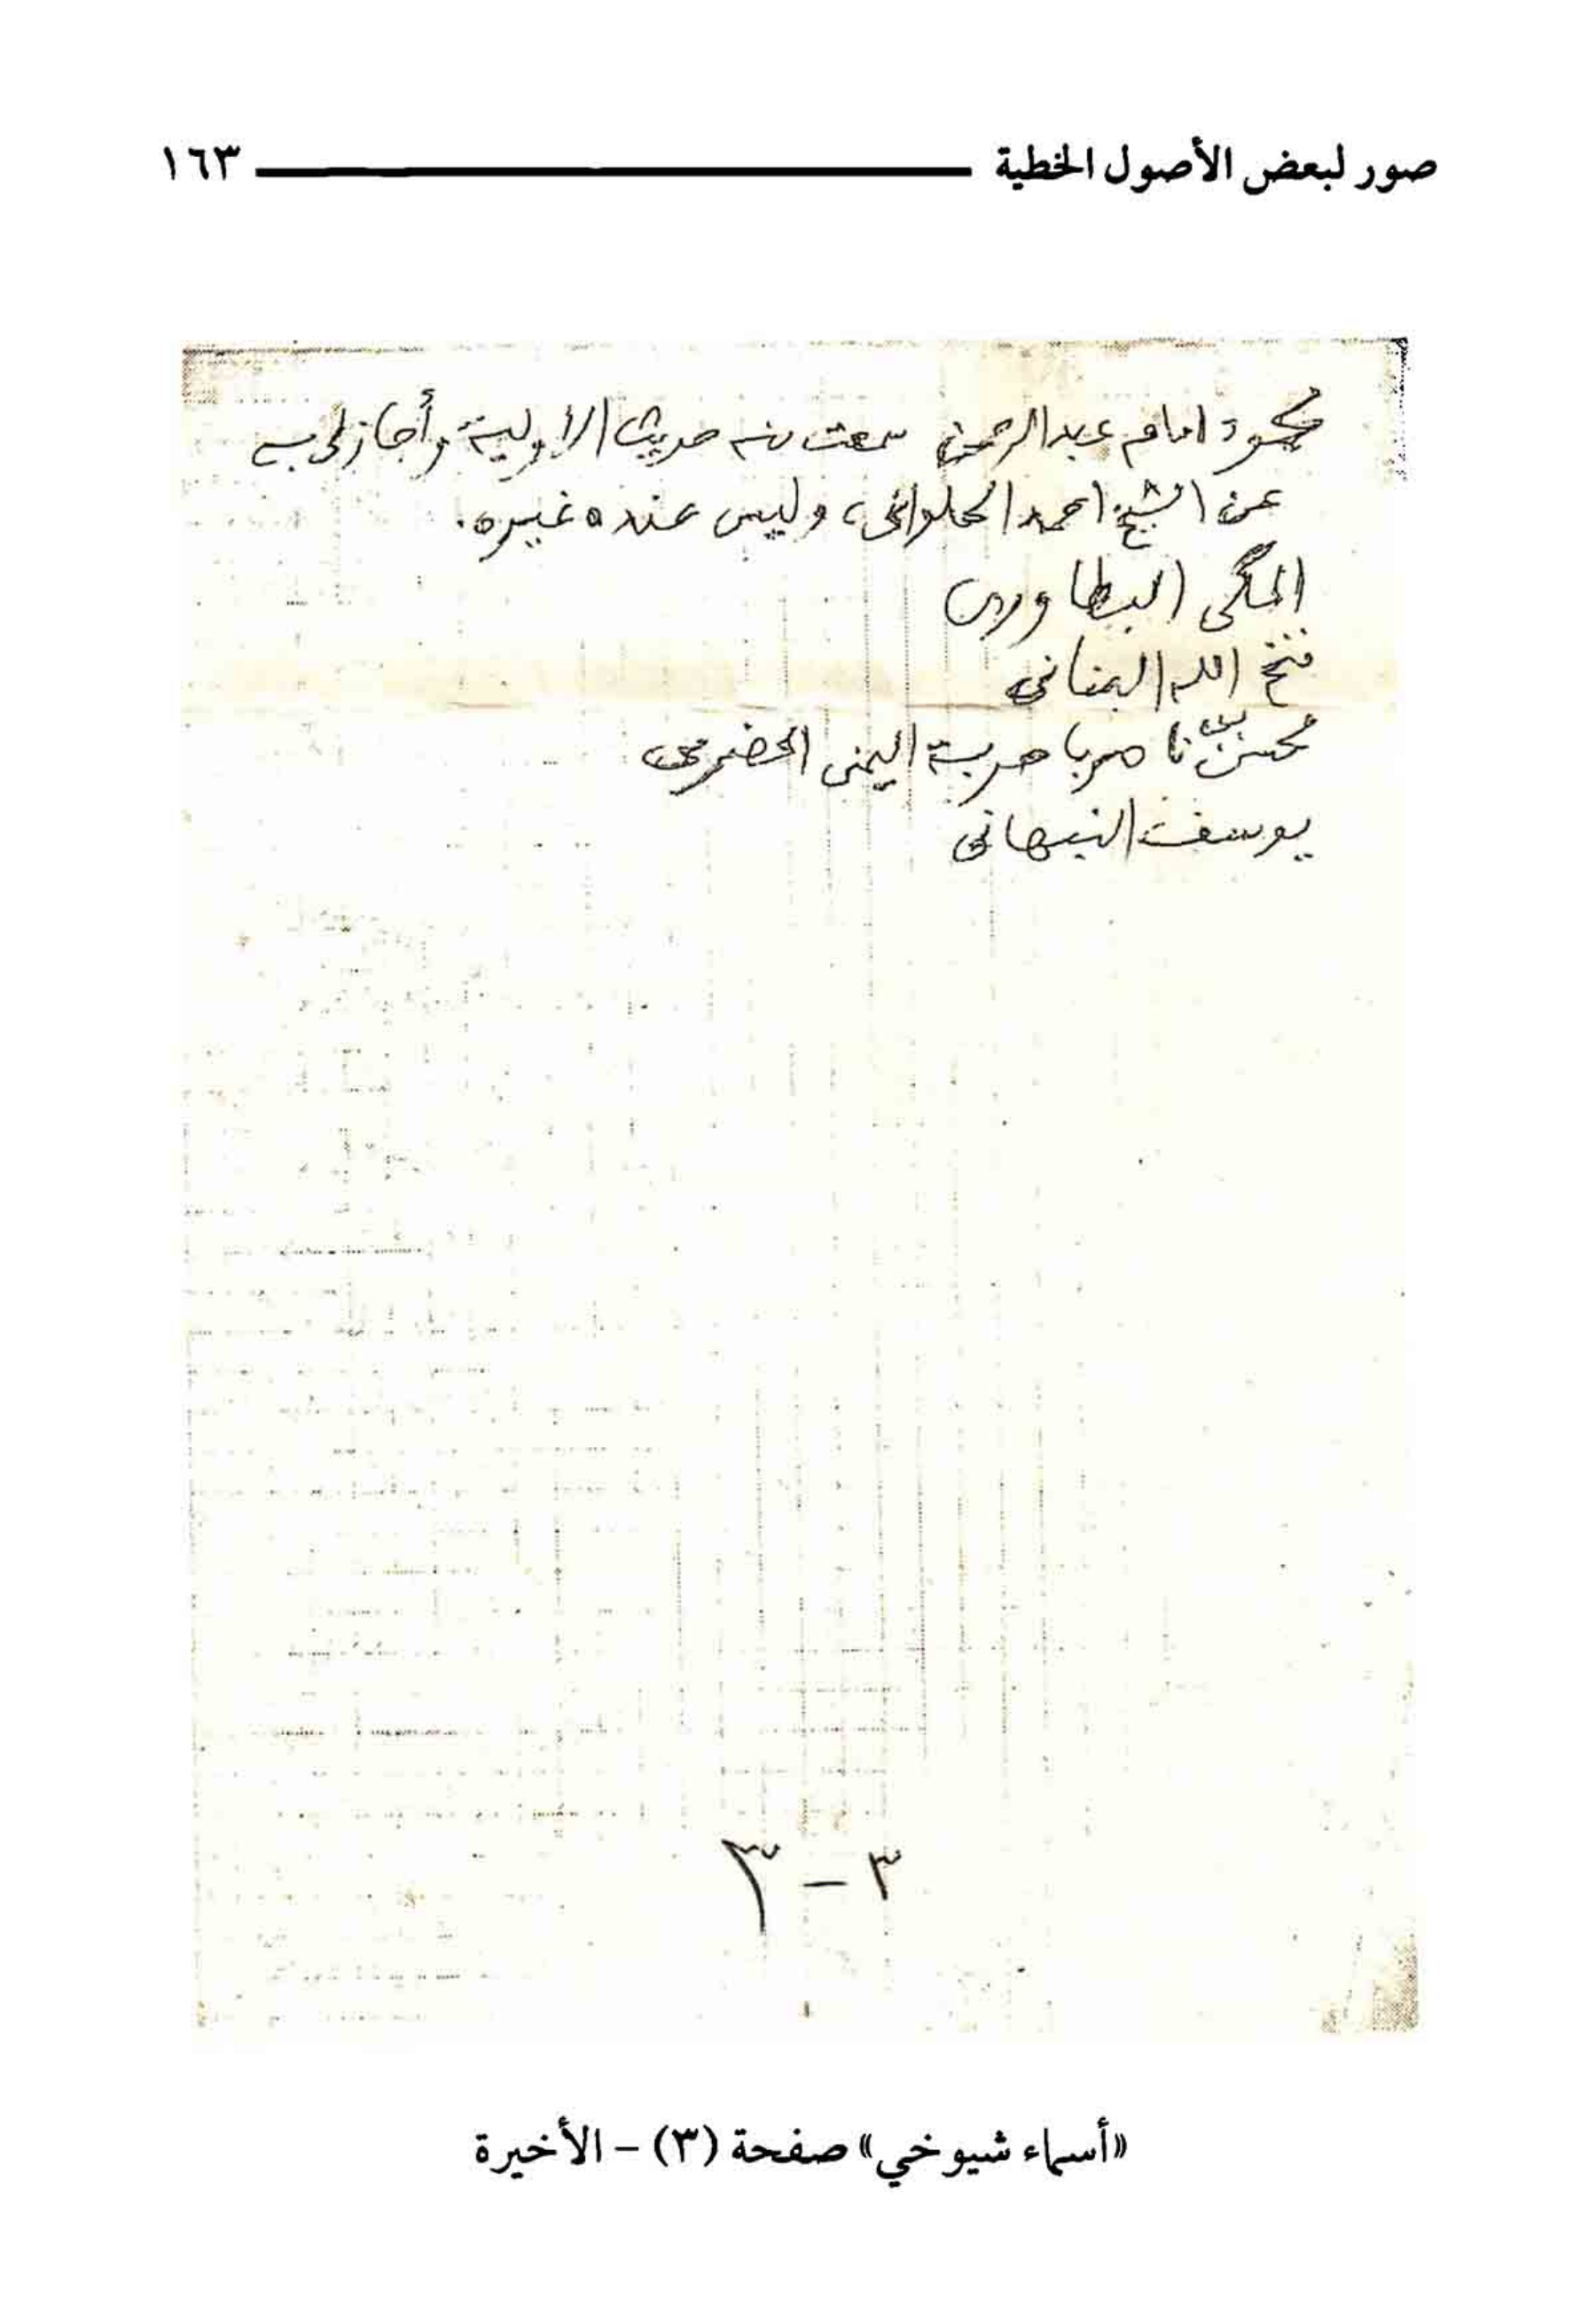 صور لبعض الأصول الخطية ١٦٣
محمود امام عبدالرحمن سمعت منه حديث الأولية وأجاز لي به
عن الشيخ احمد الحلواني، وليس عنده غيره.
المكي البطاوري
فتح الله البناني
محسن بن ناصر باحربة اليمني الحضرمي
يوسف النبهاني
٣ - ٣
«أسماء شيوخي» صفحة (٣) - الأخيرة